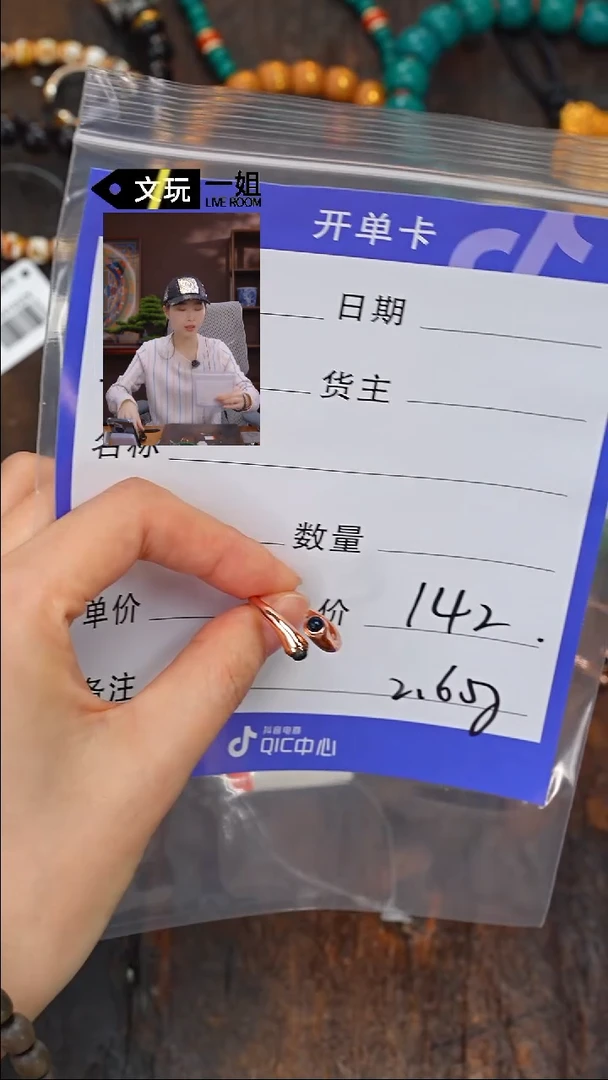 文玩 一姐
LIVE ROOM
开单卡
日期
货主
名称
数量
单价 价 142.
备注 2.65g
抖音电商
QIC中心